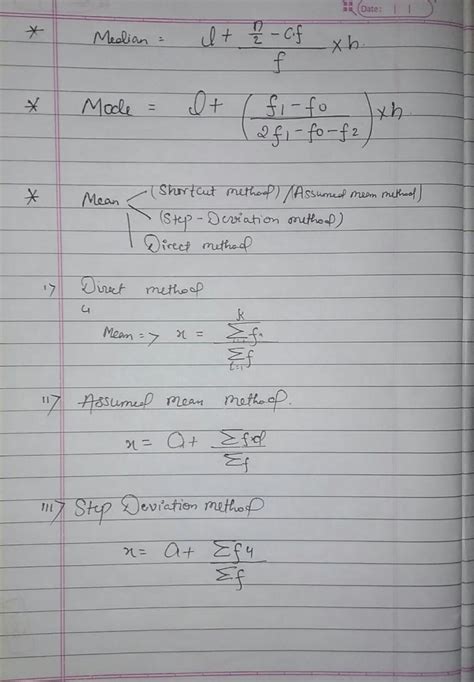 Date: | |
* Median = l + n/2 - c.f / f × h
* Mode = l + ( f1 - f0 / 2f1 - f0 - f2 ) × h
* Mean (Shortcut method) / (Assumed mean method)
(Step-Deviation method)
Direct method
i) Direct method
Mean => x = Σ f / Σ f
ii) Assumed mean method.
x = a + Σfd / Σf
iii) Step Deviation method
x = a + Σfu / Σf